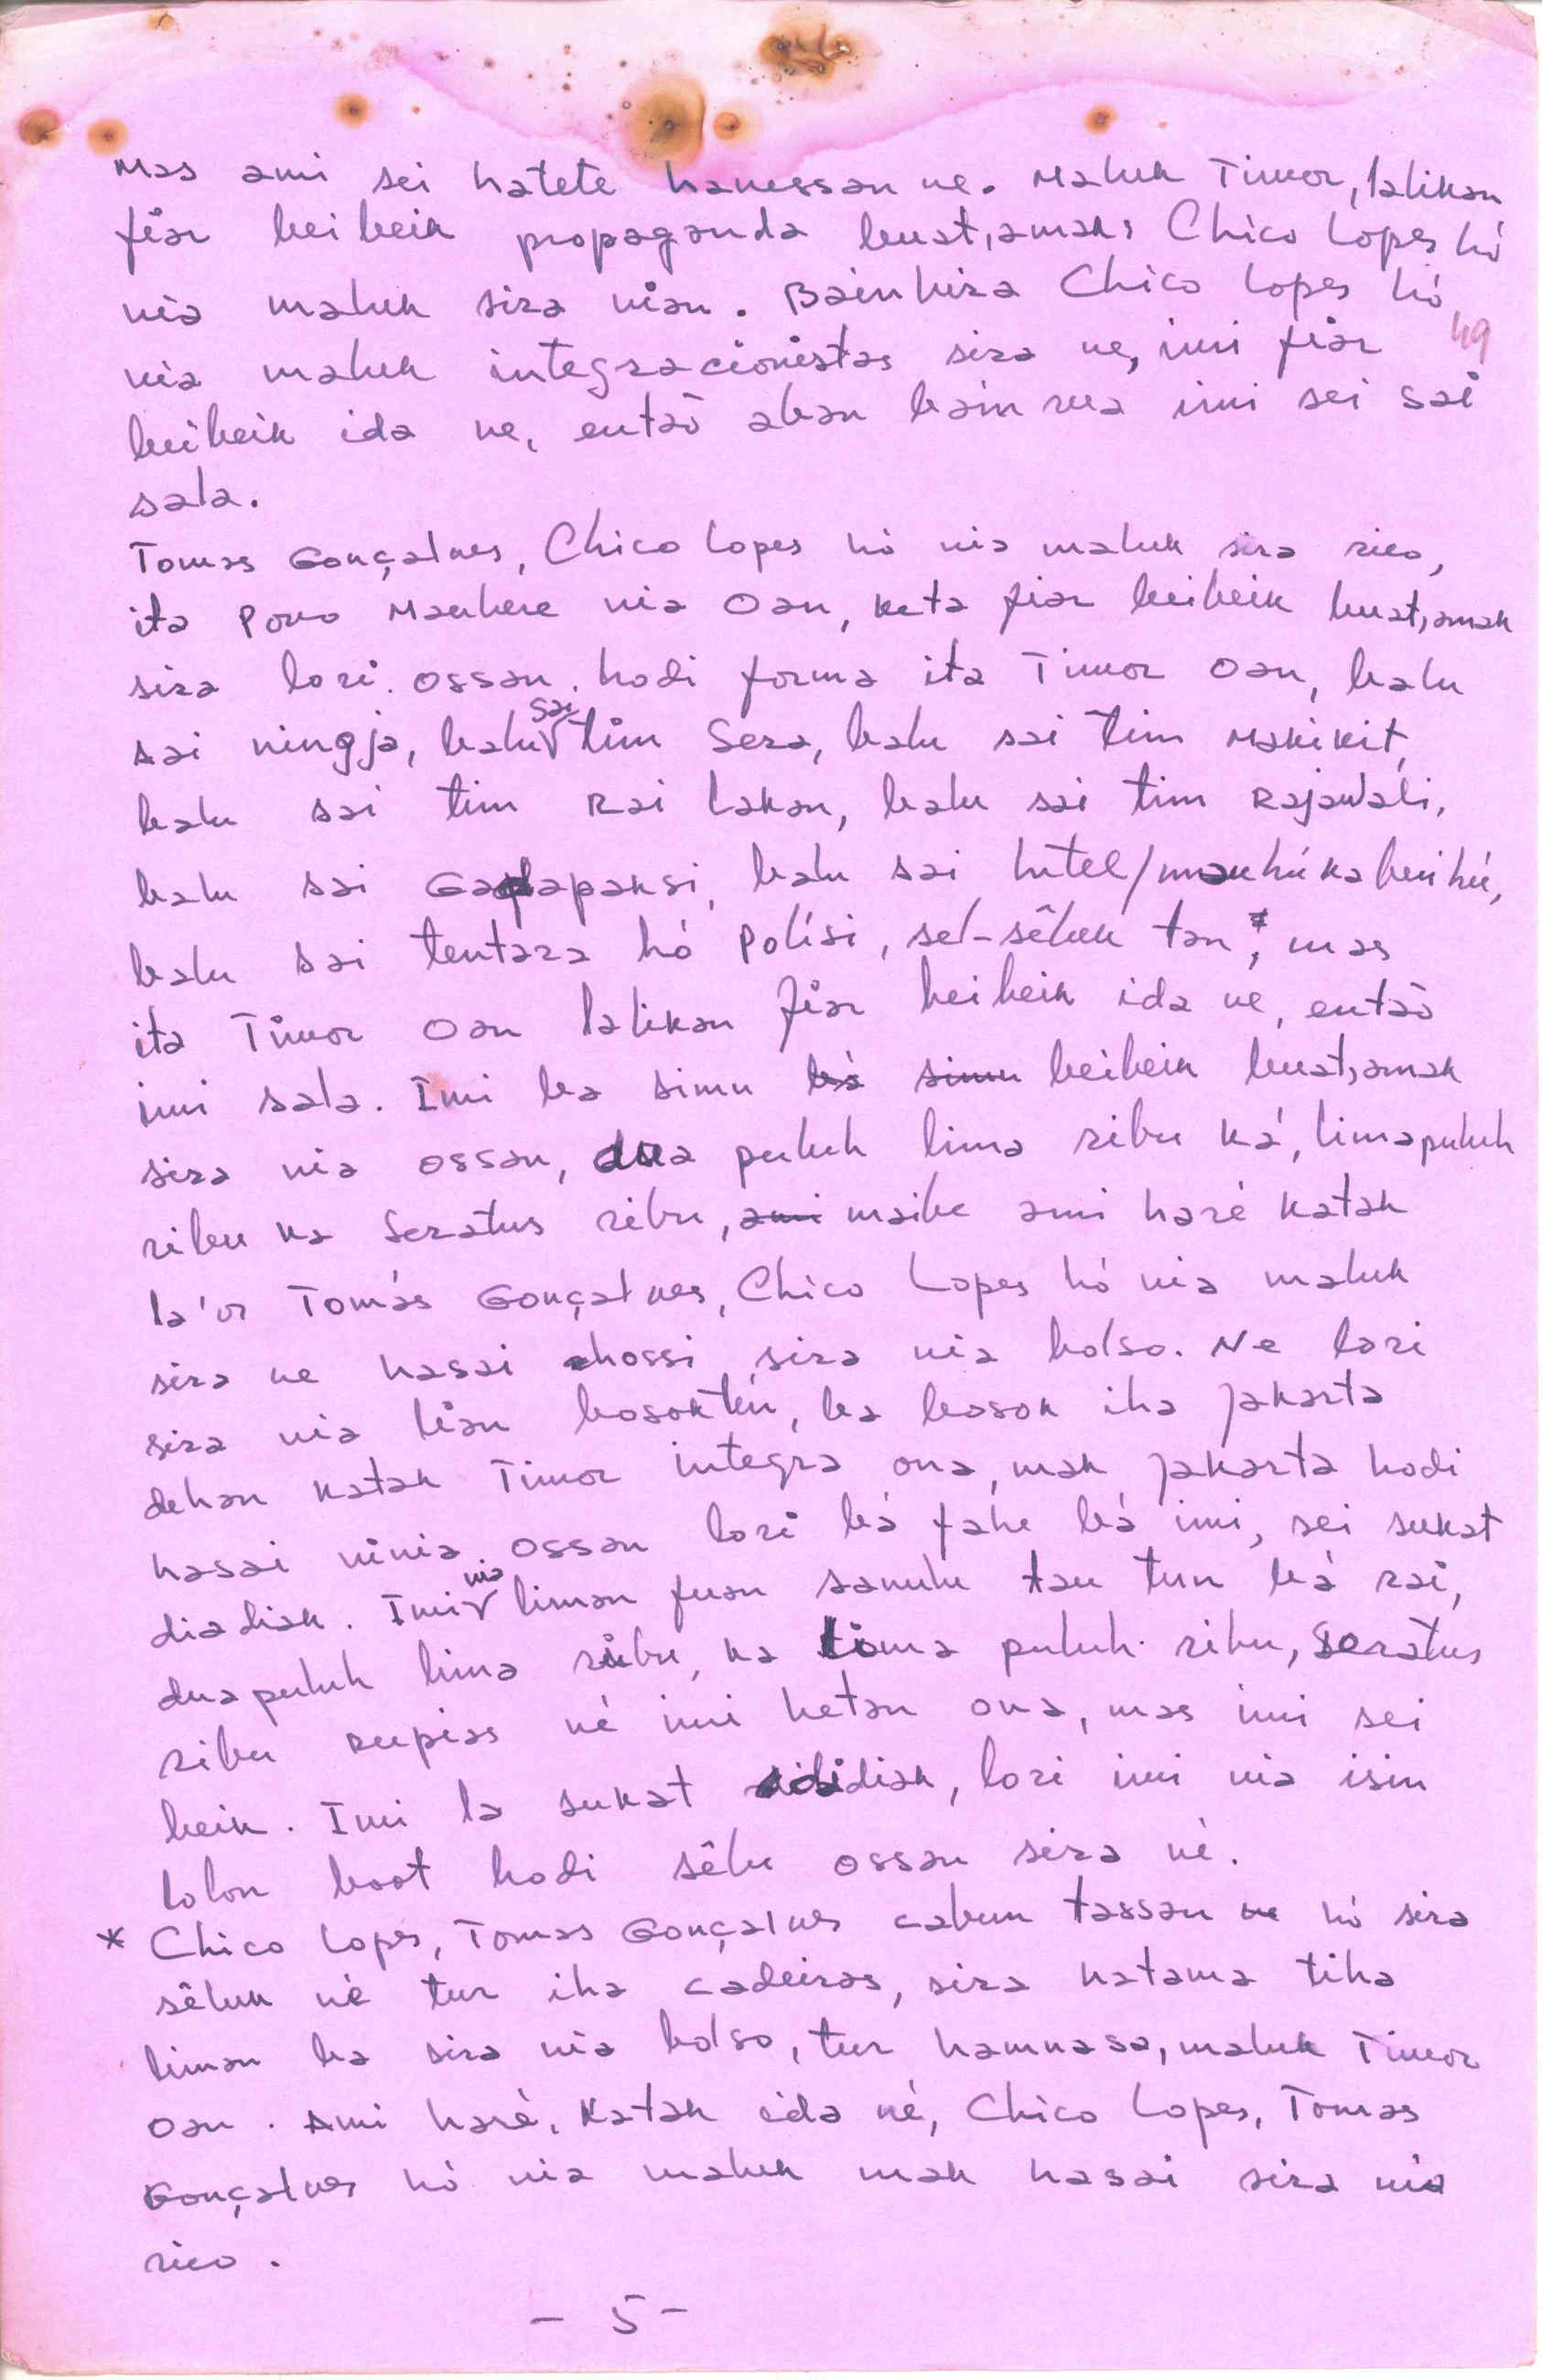 Mas ami sei hatete hanessan ne. Maluk Timor, lalikan
fiar beibeik propaganda buat, amak, Chico Lopes hó
nia maluk sira nian. Bainhira Chico Lopes hó
49
nia maluk integracionistas sira ne, imi fiar
beibeik ida ne, entaõ aban bainrua imi sei sai
sala.
Tomas Gonçalves, Chico Lopes hó nia maluk sira rico,
ita Povo Maubere nia Oan, keta fiar beibeik buat, amak
sira lori ossan hodi forma ita Timor Oan, balu
sai ningja, balu sai tim Sera, balu sai tim Makikit,
balu sai tim Rai Lakan, balu sai tim Rajawali,
balu sai Gadapaksi, balu sai Intel/mauhú kabuihú,
balu sai tentara hó Polísi, sel-sêluk tan; mas
ita Timor Oan lalikan fiar beibeik ida ne, entaõ
imi sala. Imi ba simu bá simu beibeik buat, amak
sira nia ossan, dua puluh lima ribu ká, limapuluh
ribu ka Seratus ribu, ami maibe ami haré katak
la'os Tomás Gonçalves, Chico Lopes hó nia maluk
sira ne hasai hossi sira nia bolso. Ne lori
sira nia lian bosokten, ba bosok iha Jakarta
dehan katak Timor integra ona, mak Jakarta hodi
hasai ninia ossan lori bá fahe bá imi, sei sukat
diadiak. Imi nia liman fuan sanulu tau tun bá rai,
duapuluh lima ribu, ka lima puluh ribu, Seratus
ribu rupias né imi hetan ona, mas imi sei
beik. Imi la sukat didiak, lori imi nia isin
lolon boot hodi sêlu ossan sira né.
* Chico Lopes, Tomas Gonçalves cabun tassan ne hó sira
sêluk né tur iha cadeiras, sira hatama tiha
liman ba sira nia bolso, tur hamnasa, maluk Timor
Oan. Ami haré, katak ida né, Chico Lopes, Tomas
Gonçalves hó nia maluk mak hasai sira nia
rico.
- 5 -